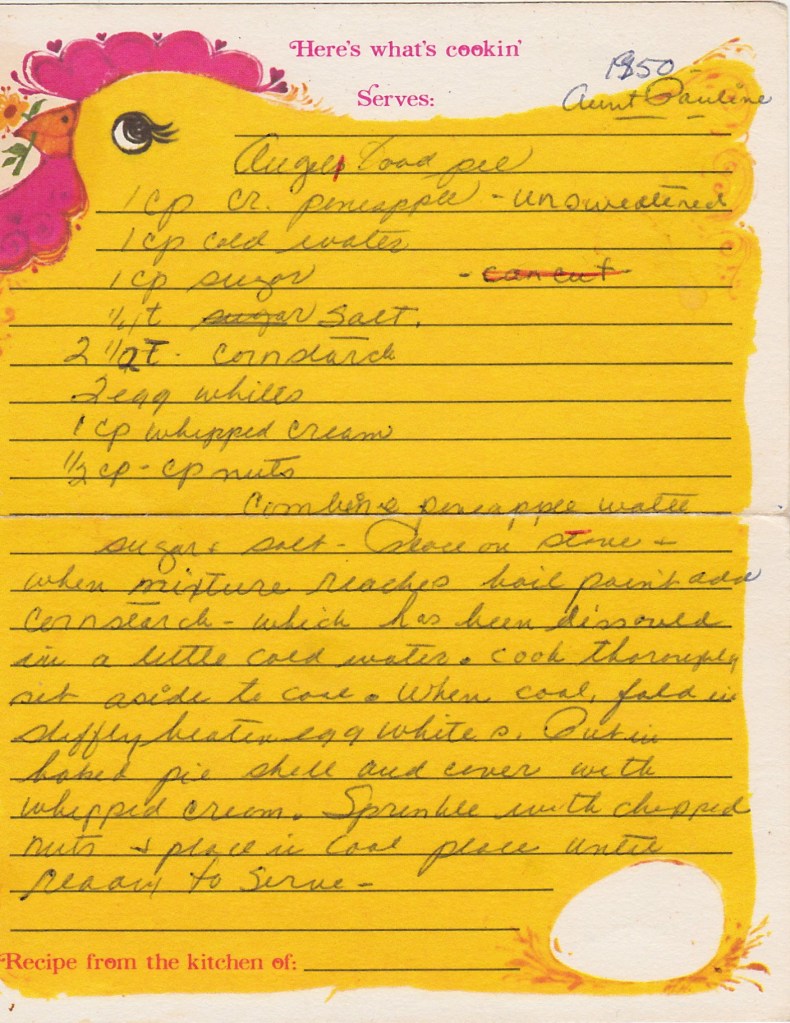 Here's what's cookin'
1950 -
Serves:
Aunt Pauline
Angel Food pie
1 cp cr. pineapple - unsweetened
1 cp cold water
1 cp sugar - can cut -
t sugar salt.
2 1/2 t. cornstarch
2 egg whites
1 cp whipped cream
1/2 cp - cp nuts
Combine pineapple water
sugar & salt - Place on stove -
when mixture reaches boil point add
cornstarch - which has been dissolved
in a little cold water. cook thoroughly
set aside to cool. When cool, fold in
stiffly beaten egg whites. Put in
baked pie shell and cover with
whipped cream. Sprinkle with chopped
nuts & place in cool place until
ready to serve -
Recipe from the kitchen of: